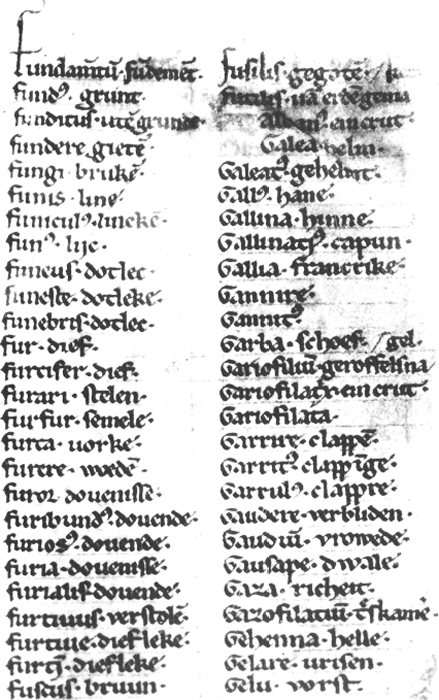 Fundamētū · fūdemēt ·
fundꝰ · grunt ·
funditus · utē grunde ·
fundere · gietē ·
fungi · brukē ·
funis · line ·
funiculꝰ · linekē ·
funꝰ · lijc ·
funeus · dotlec ·
funeste · dotleke ·
funebris · dotlec ·
fur · dief ·
furcifer · dief ·
furari · stelen ·
furfur · semele ·
furca · uorke ·
furere · woedē ·
furor douenisse ·
furibundꝰ · douende ·
furiosꝰ · douende ·
furia · douenisse ·
furialis · douende ·
furtiuus · verstolē ·
furtiue · diefleke ·
diefleke ·
fuscus · bruun ·
Fusilis · gegotē ·
Futilis · uā erdē gema
einerut ·
Galea · helm ·
Galeatꝰ · gehelmt ·
Gallꝰ · hane ·
Gallina · hinne ·
capun ·
Gallia · francrike ·
Gannire ·
Gannitꝰ
Garba · schoef · / gel ·
Gariofiliū · geroffelsna
Gariofilata ·
Garrire · clappē ·
Garritꝰ · clappīge ·
Garrulꝰ · clappre ·
Gaudere · verbliden ·
Gaudiū · vrowede ·
Gausape · dwale ·
Gaza · richeit ·
Gazofilaciū ·
Gehenna · helle ·
Gelare · urisen ·
Gelu · vorst ·